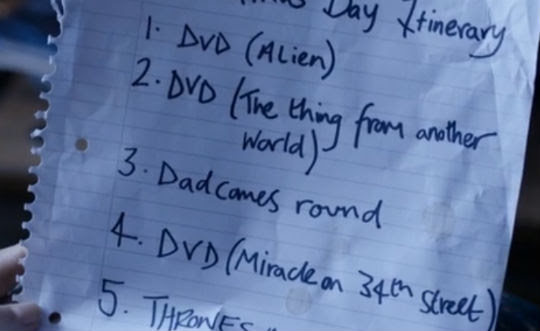 Day Itinerary
1. DVD (Alien)
2. DVD (The thing from another
World)
3. Dad comes round
4. DVD (Miracle on 34th Street)
5. THRONES